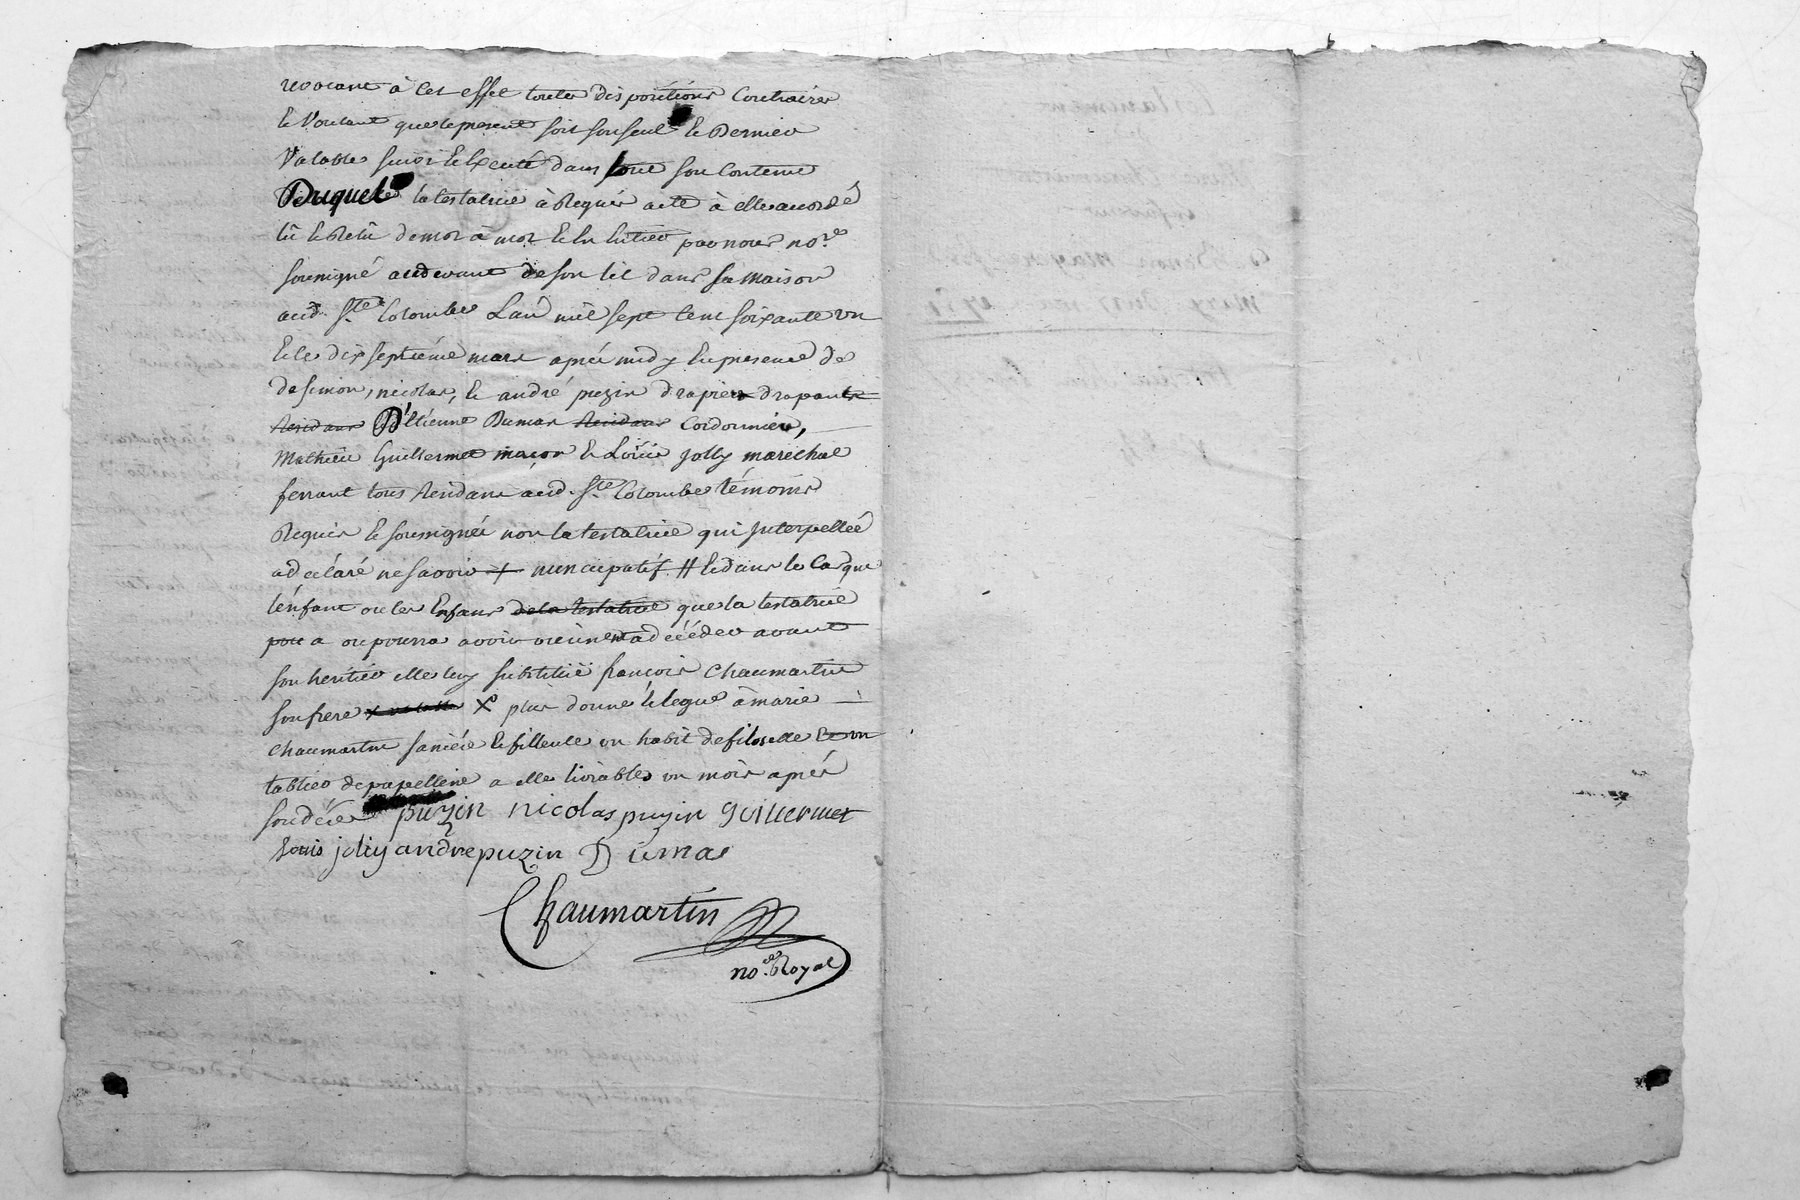 revocant à cet effet toutes dispositions Contraires
le Voulant que le present soit son seul & Dernier
Valable suivi & Execcuté dans tout son Contenu
Duquel la testatrice à Requis acte à elle accordé
lû & Relû de mot à mot & lu Entier par nous no.re
soussigné audevant de son lit dans sa maison
aud. Ste Colombe L'an mil sept cent soixante un
& le dix septième mars après midy En presence de
de simon, nicolas, & andré puzin drapiers drapants
Residans D'Etienne Dumas Residans Cordonnier,
Mathieu Guillermet maçon & Loüis jolly maréchal
ferrant tous Residans aud. Ste Colombe témoins
Requis & soussignés non la testatrice qui Interpellée
a déclaré ne savoir + nuncupatif # & dans le Cas que
l'enfant ou les Enfans de la testatrice que la testatrice
a ou pourra avoir viennent a décéder avant
son heritier elle luy substitüe françois Chaumartin
son frere X plus donne & legue à marie
Chaumartin sa niéce & filleule un habit de filoselle & un
tablier de papeline a elle livrables un mois après
son décés puzin nicolas puzin guillermet
Louis joliy andre puzin Dumas
Chaumartin
no.re Royal